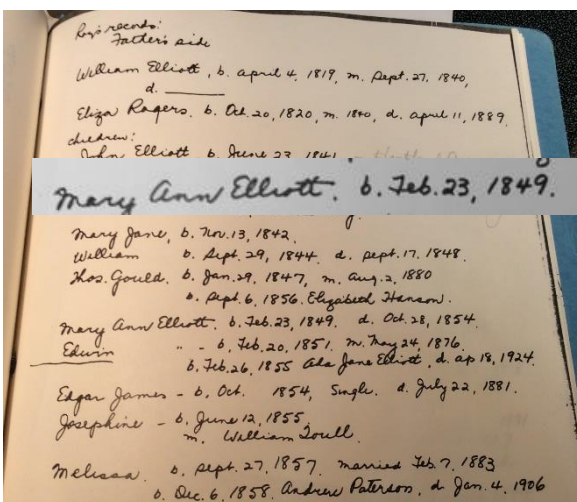 Roy's records:
Father's side
William Elliott, b. April 4, 1819, m. Sept. 27, 1840,
d. ______
Eliza Rogers. b. Oct. 20, 1820, m. 1840, d. April 11, 1889.
children:
John Elliott b. June 23, 1841
Mary Ann Elliott. b. Feb. 23, 1849.
Mary Jane, b. Nov. 13, 1842.
William b. Sept. 29, 1844. d. Sept. 17. 1848.
Thos. Gould. b. Jan. 29, 1847, m. Aug. 2, 1880
b. Sept. 6, 1856. Elizabeth Hanson.
Mary Ann Elliott. b. Feb. 23, 1849. d. Oct. 28, 1854.
Edwin " - b. Feb. 20, 1851. m. May 24, 1876.
b. Feb. 26, 1855 Ada Jane Elliott, d. ap 18, 1924.
Edgar James - b. Oct. 1854, Single. d. July 22, 1881.
Josephine - b. June 12, 1855
m. William
Melissa. b. Sept. 27, 1857. married Feb. 7, 1883
b. Dec. 6, 1858. Andrew Paterson, d Jan. 4, 1906